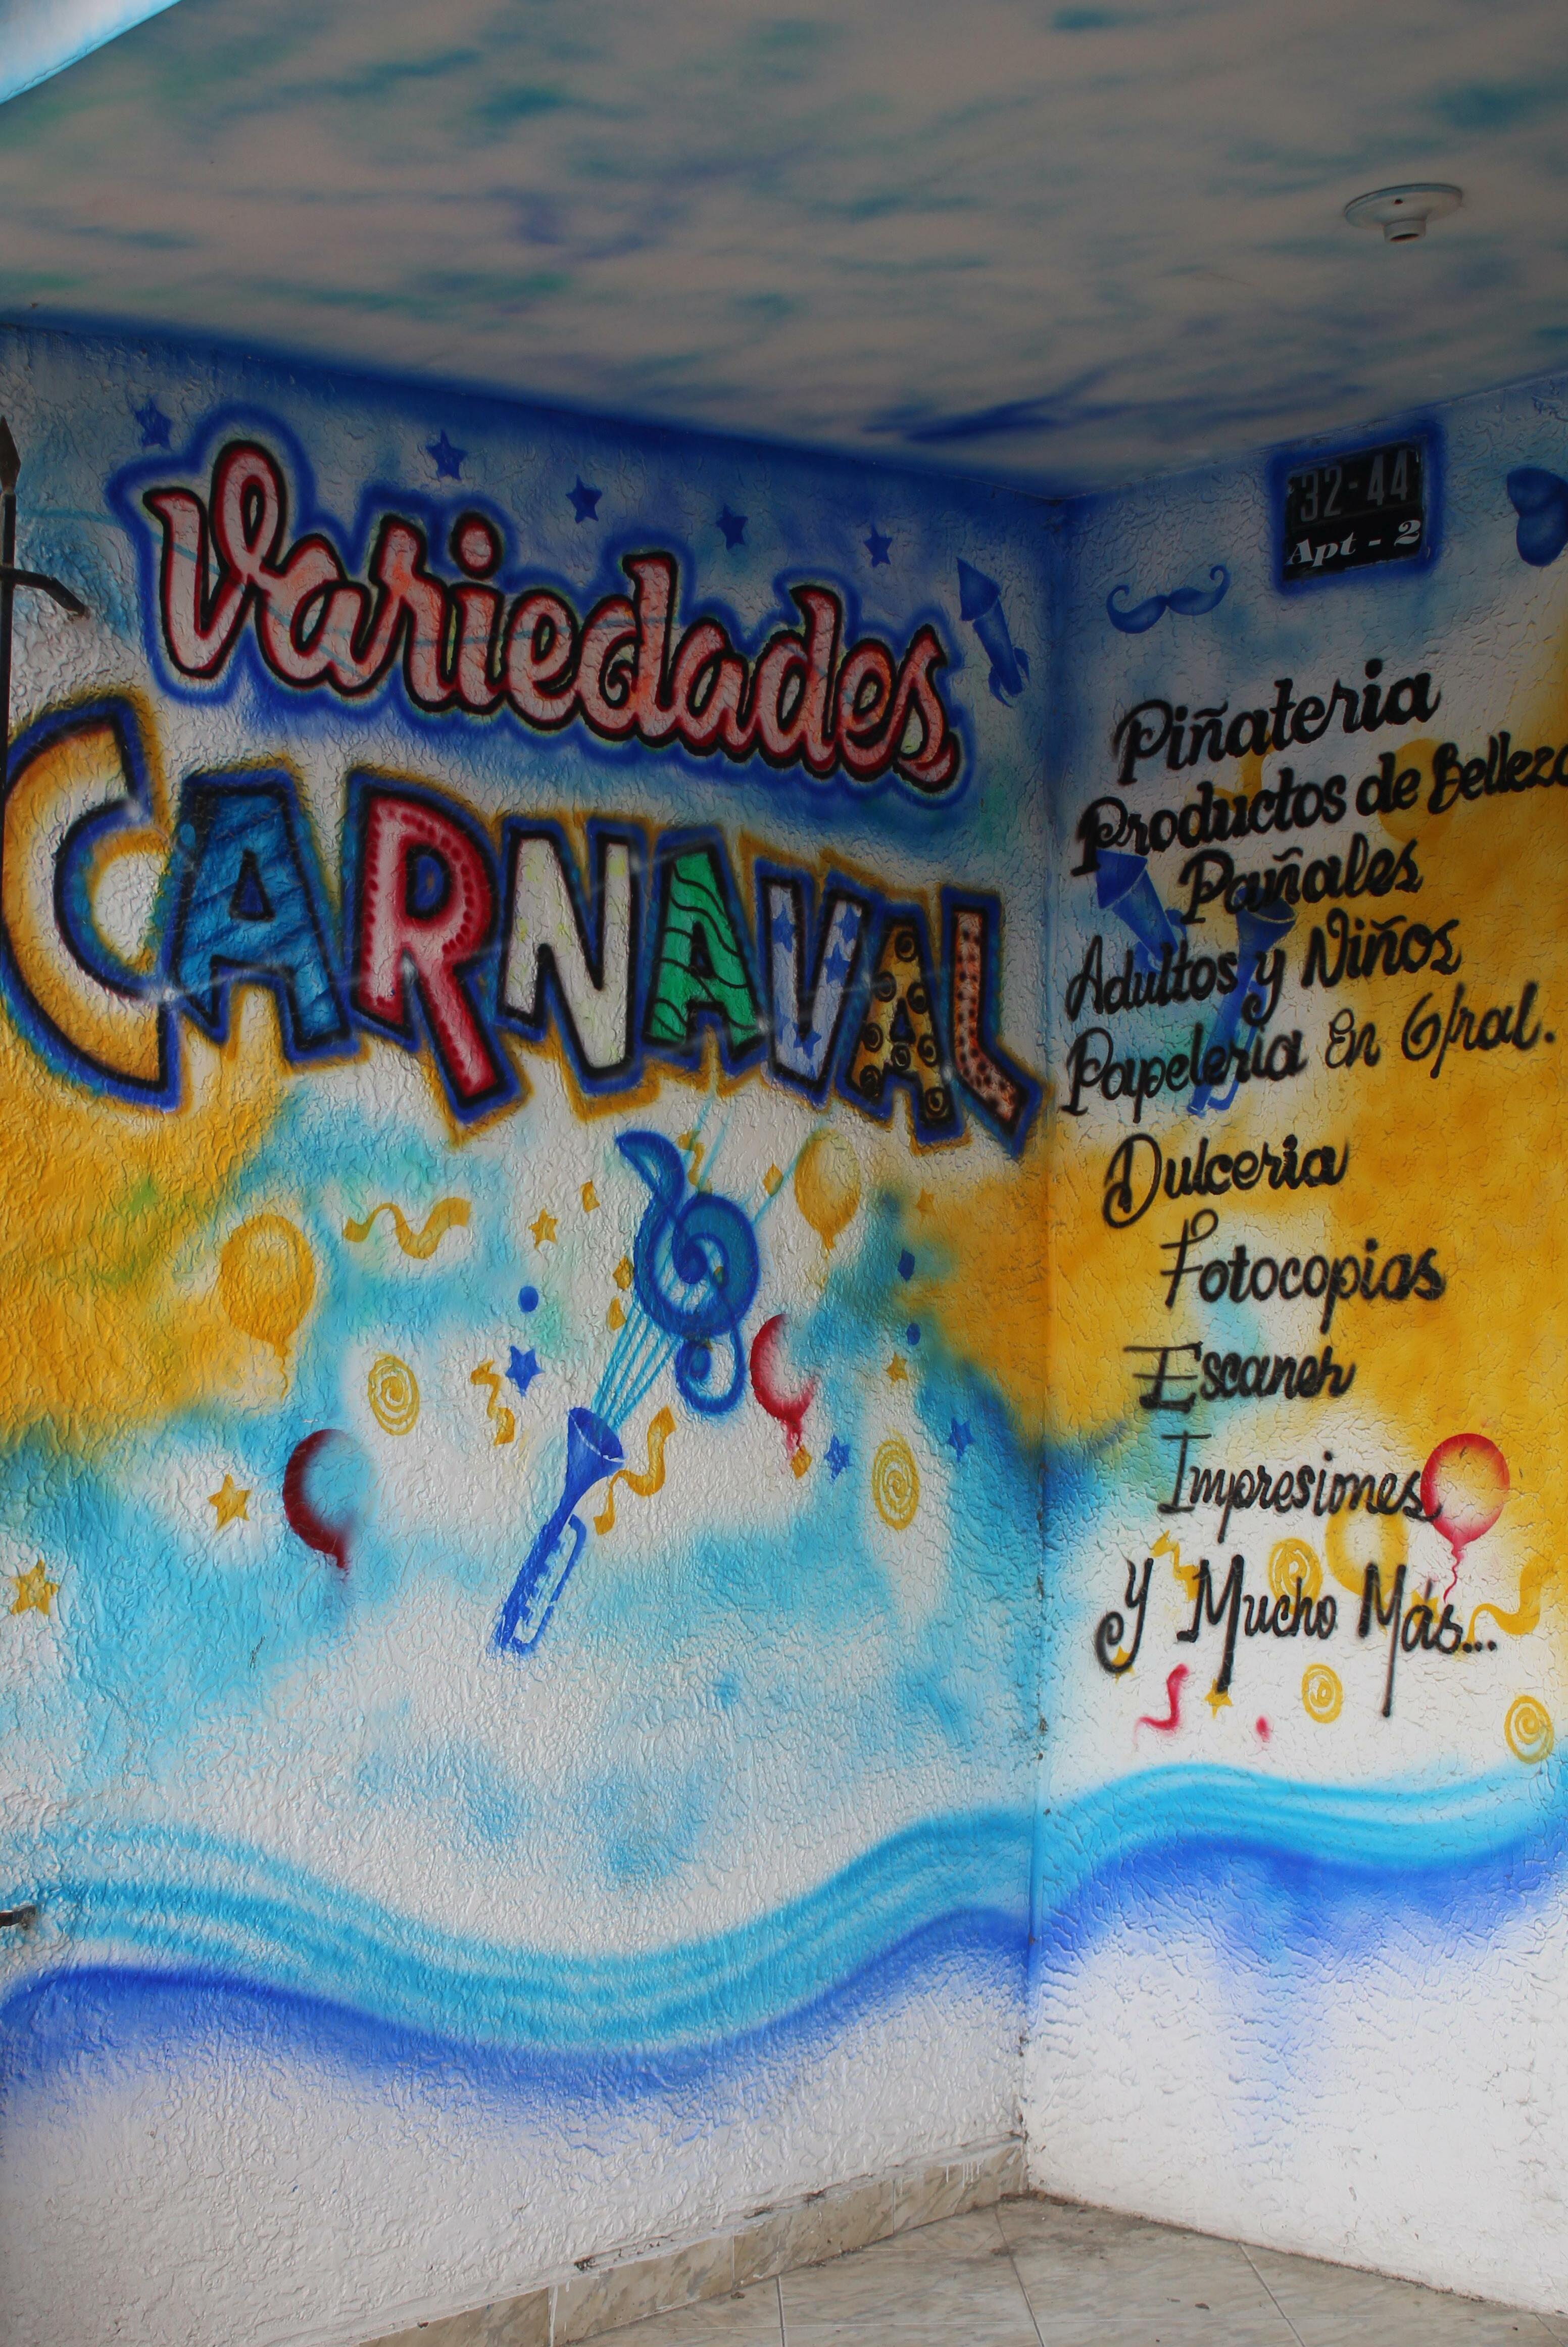 Variedades
CARNAVAL
32-44
Apt - 2
Piñateria
Productos de Belleza
Pañales
Adultos y Niños
Papeleria En G/ral.
Dulceria
Fotocopias
Escaner
Impresiones
y Mucho Más...